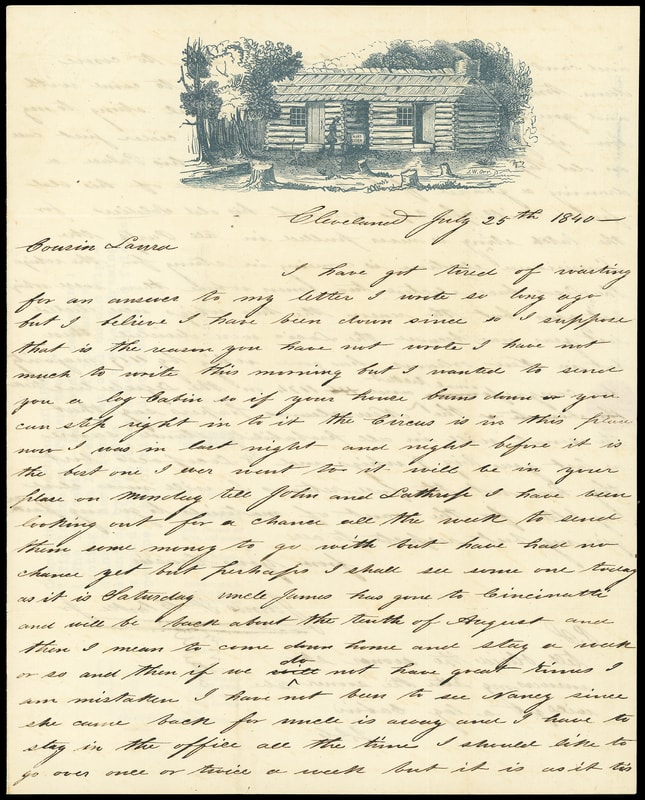 J.W. Orr.
Cleveland July 25th 1840—
Cousin Laura
I have got tired of waiting
for an answer to my letter I wrote so long ago
but I believe I have been down since so I suppose
that is the reason you have not wrote I have not
much to write this morning but I wanted to send
you a log Cabin so if your house burns down or you
can step right in to it the Circus is in this place
now I was in last night and night before it is
the best one I ever went to it will be in your
place on Monday tell John and Lathrop I have been
looking out for a chance all the week to send
them some money to go with but have had no
chance yet but perhaps I shall see some one today
as it is Saturday uncle James has gone to Cincinatti
and will be back about the tenth of August and
then I mean to come down home and stay a week
or so and then if we do not have great times I
am mistaken I have not been to see Nancy since
she came back for uncle is away and I have to
stay in the office all the time I should like to
go over once or twice a week but it is as it tis